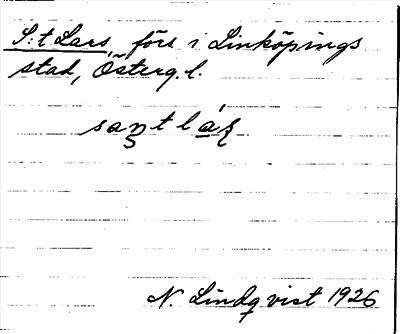 S:t Lars, förs i Linköpings
stad, Österg. l.
san̡t lás̡
N. Lindqvist 1926